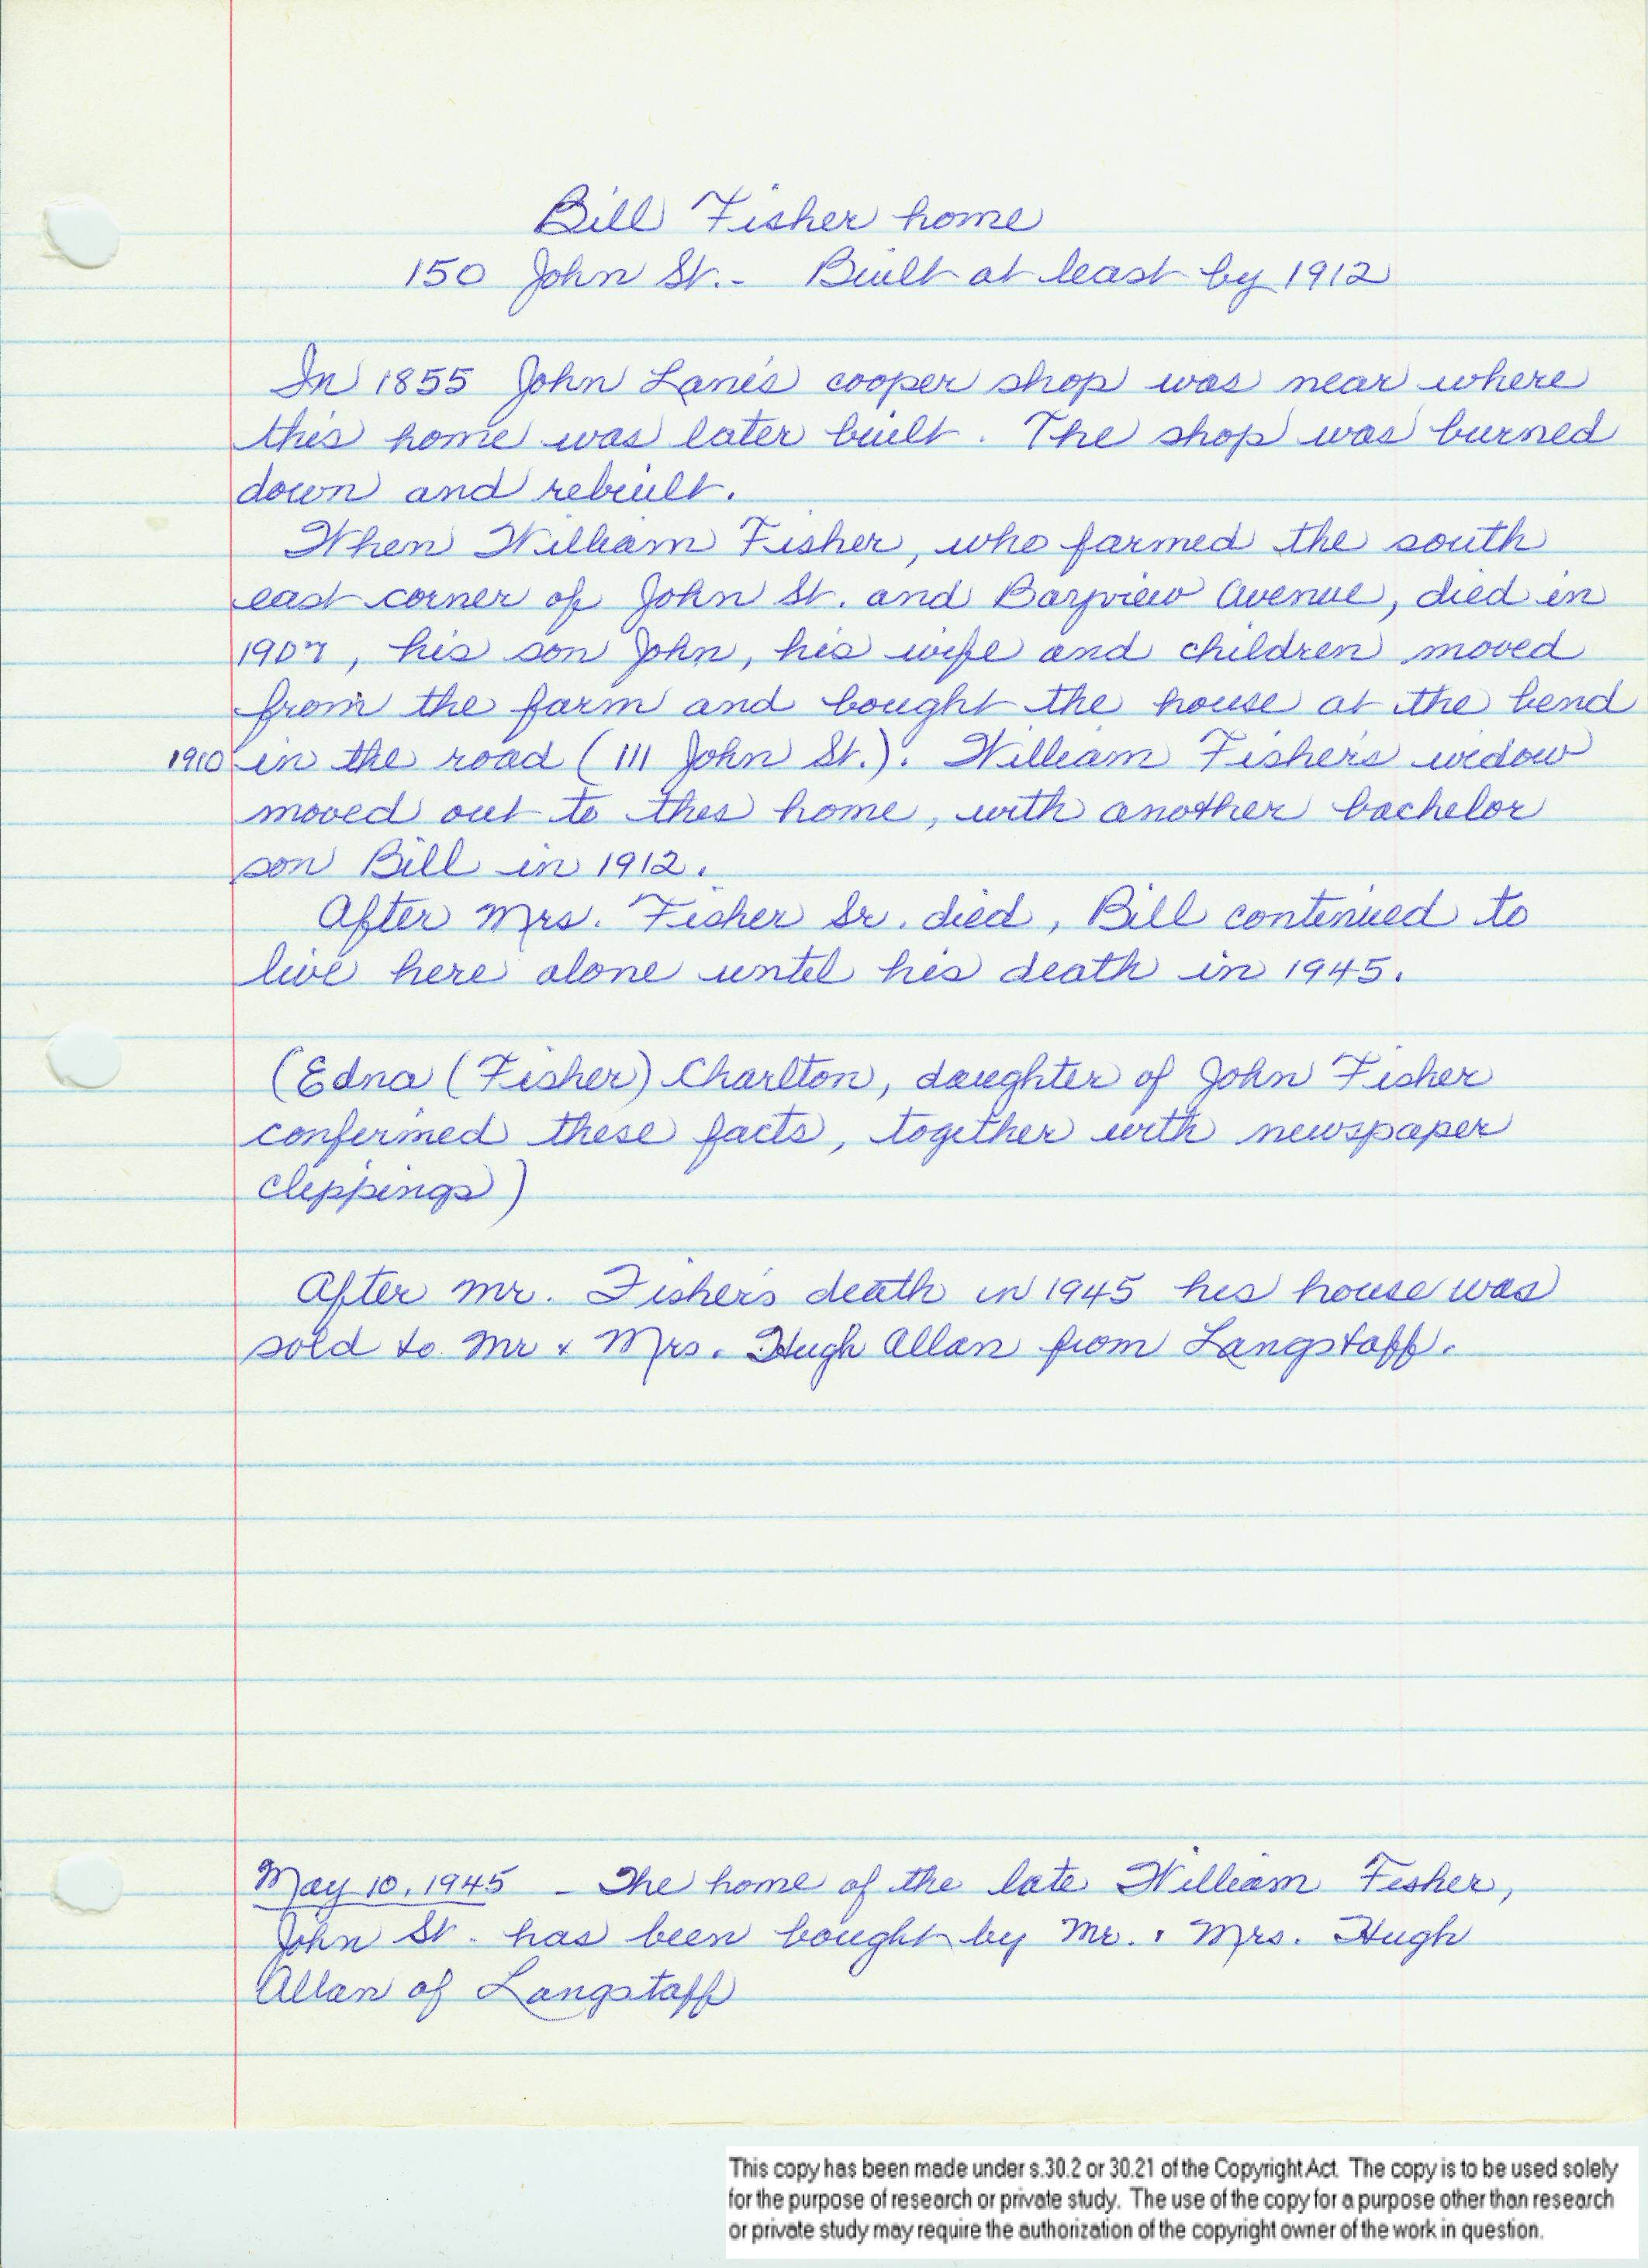 Bill Fisher home
150 John St. - Built at least by 1912
In 1855 John Lane's cooper shop was near where
this home was later built. The shop was burned
down and rebuilt.
When William Fisher, who farmed the south
east corner of John St. and Bayview Avenue, died in
1907, his son John, his wife and children moved
from the farm and bought the house at the bend
1910 in the road (111 John St.). William Fisher's widow
moved out to this home, with another bachelor
son Bill in 1912.
After Mrs. Fisher Sr. died, Bill continued to
live here alone until his death in 1945.
(Edna (Fisher) Charlton, daughter of John Fisher
confirmed these facts, together with newspaper
clippings)
After Mr. Fisher's death in 1945 his house was
sold to Mr & Mrs. Hugh Allan from Langstaff.
May 10, 1945 - The home of the late William Fisher,
John St. has been bought by Mr. & Mrs. Hugh
Allan of Langstaff
This copy has been made under s.30.2 or 30.21 of the Copyright Act. The copy is to be used solely
for the purpose of research or private study. The use of the copy for a purpose other than research
or private study may require the authorization of the copyright owner of the work in question.